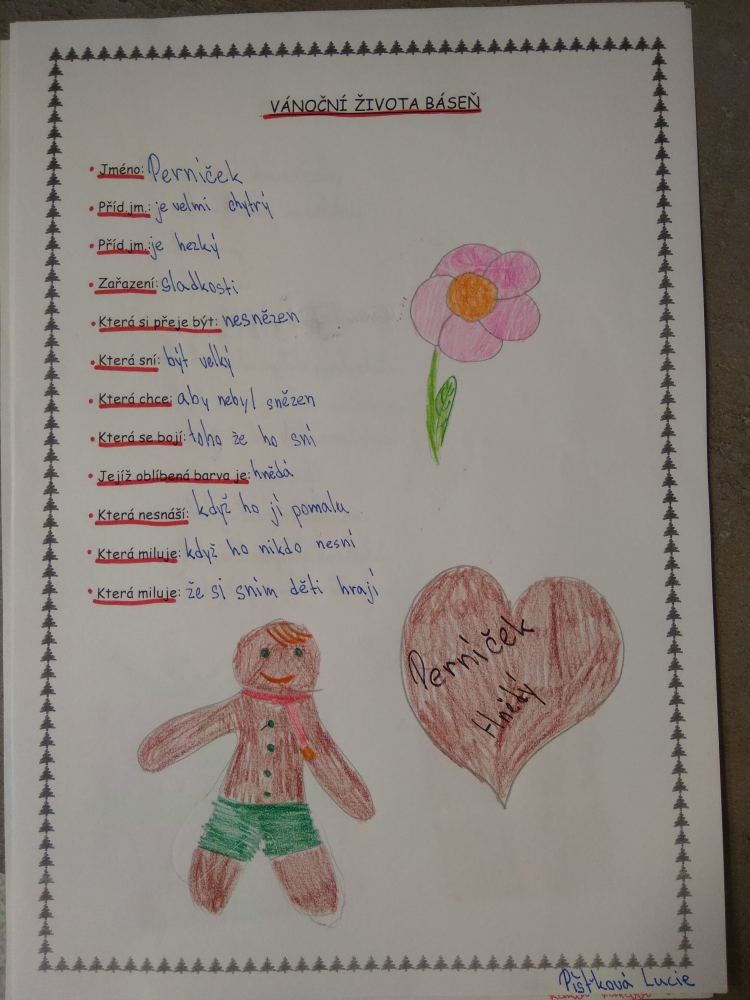 VÁNOČNÍ ŽIVOTA BÁSEŇ
• Jméno: Perníček
• Příd.jm.: je velmi chytrý
• Příd.jm.: je hezký
• Zařazení: sladkosti
• Která si přeje být: nesnězen
• Která sní: být velký
• Která chce: aby nebyl snězen
• Která se bojí: toho že ho sní
• Jejíž oblíbená barva je: hnědá
• Která nesnáší: když ho jí pomalu
• Která miluje: když ho nikdo nesní
• Která miluje: že si sním děti hrají
Perníček
Hnědý
Pištková Lucie